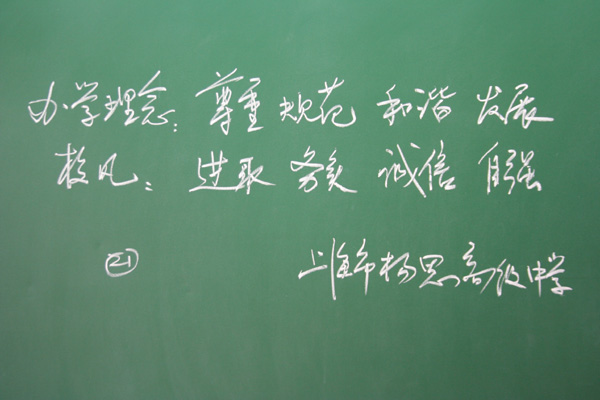 办学理念：尊重 规范 和谐 发展
校风：进取 务实 诚信 自强
㉑ 上海市杨思高级中学